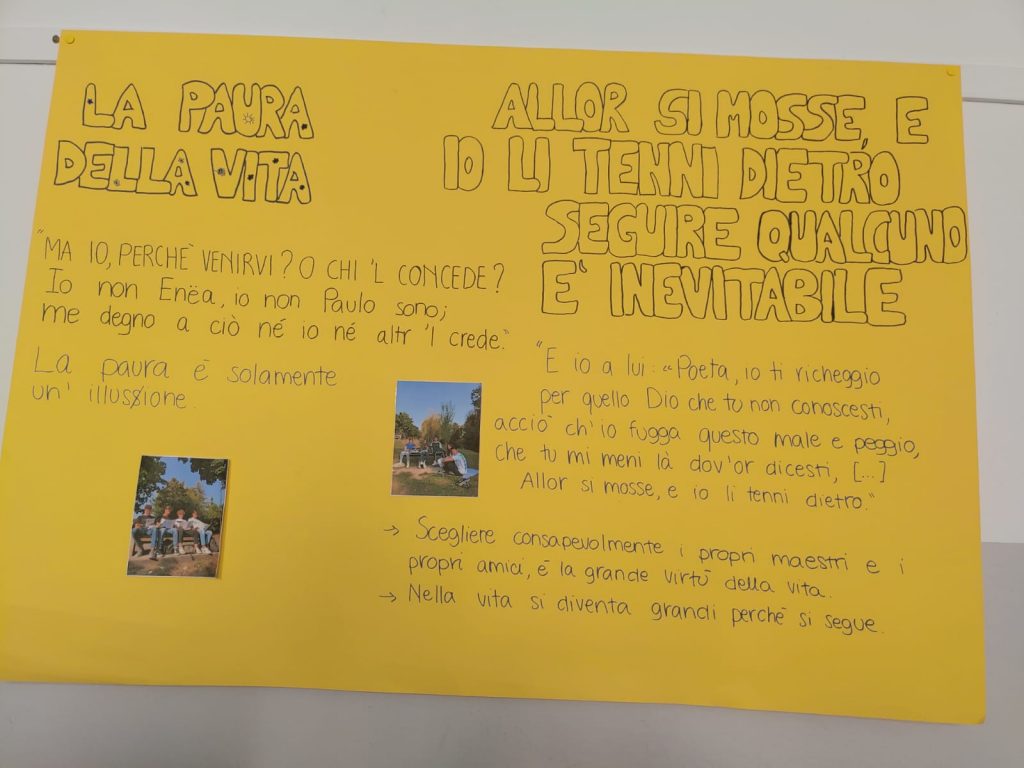 LA PAURA
DELLA VITA
"MA IO, PERCHÈ VENIRVI? O CHI 'L CONCEDE?
Io non Enëa, io non Paulo sono;
me degno a ciò né io né altr 'l crede."
La paura è solamente
un' illussione.
ALLOR SI MOSSE, E
IO LI TENNI DIETRO
SEGUIRE QUALCUNO
E' INEVITABILE
"E io a lui: «Poeta, io ti richeggio
per quello Dio che tu non conoscesti,
acciò ch'io fugga questo male e peggio,
che tu mi meni là dov'or dicesti, [...]
Allor si mosse, e io li tenni dietro."
→ Scegliere consapevolmente i propri maestri e i
propri amici, è la grande virtù della vita.
→ Nella vita si diventa grandi perchè si segue.